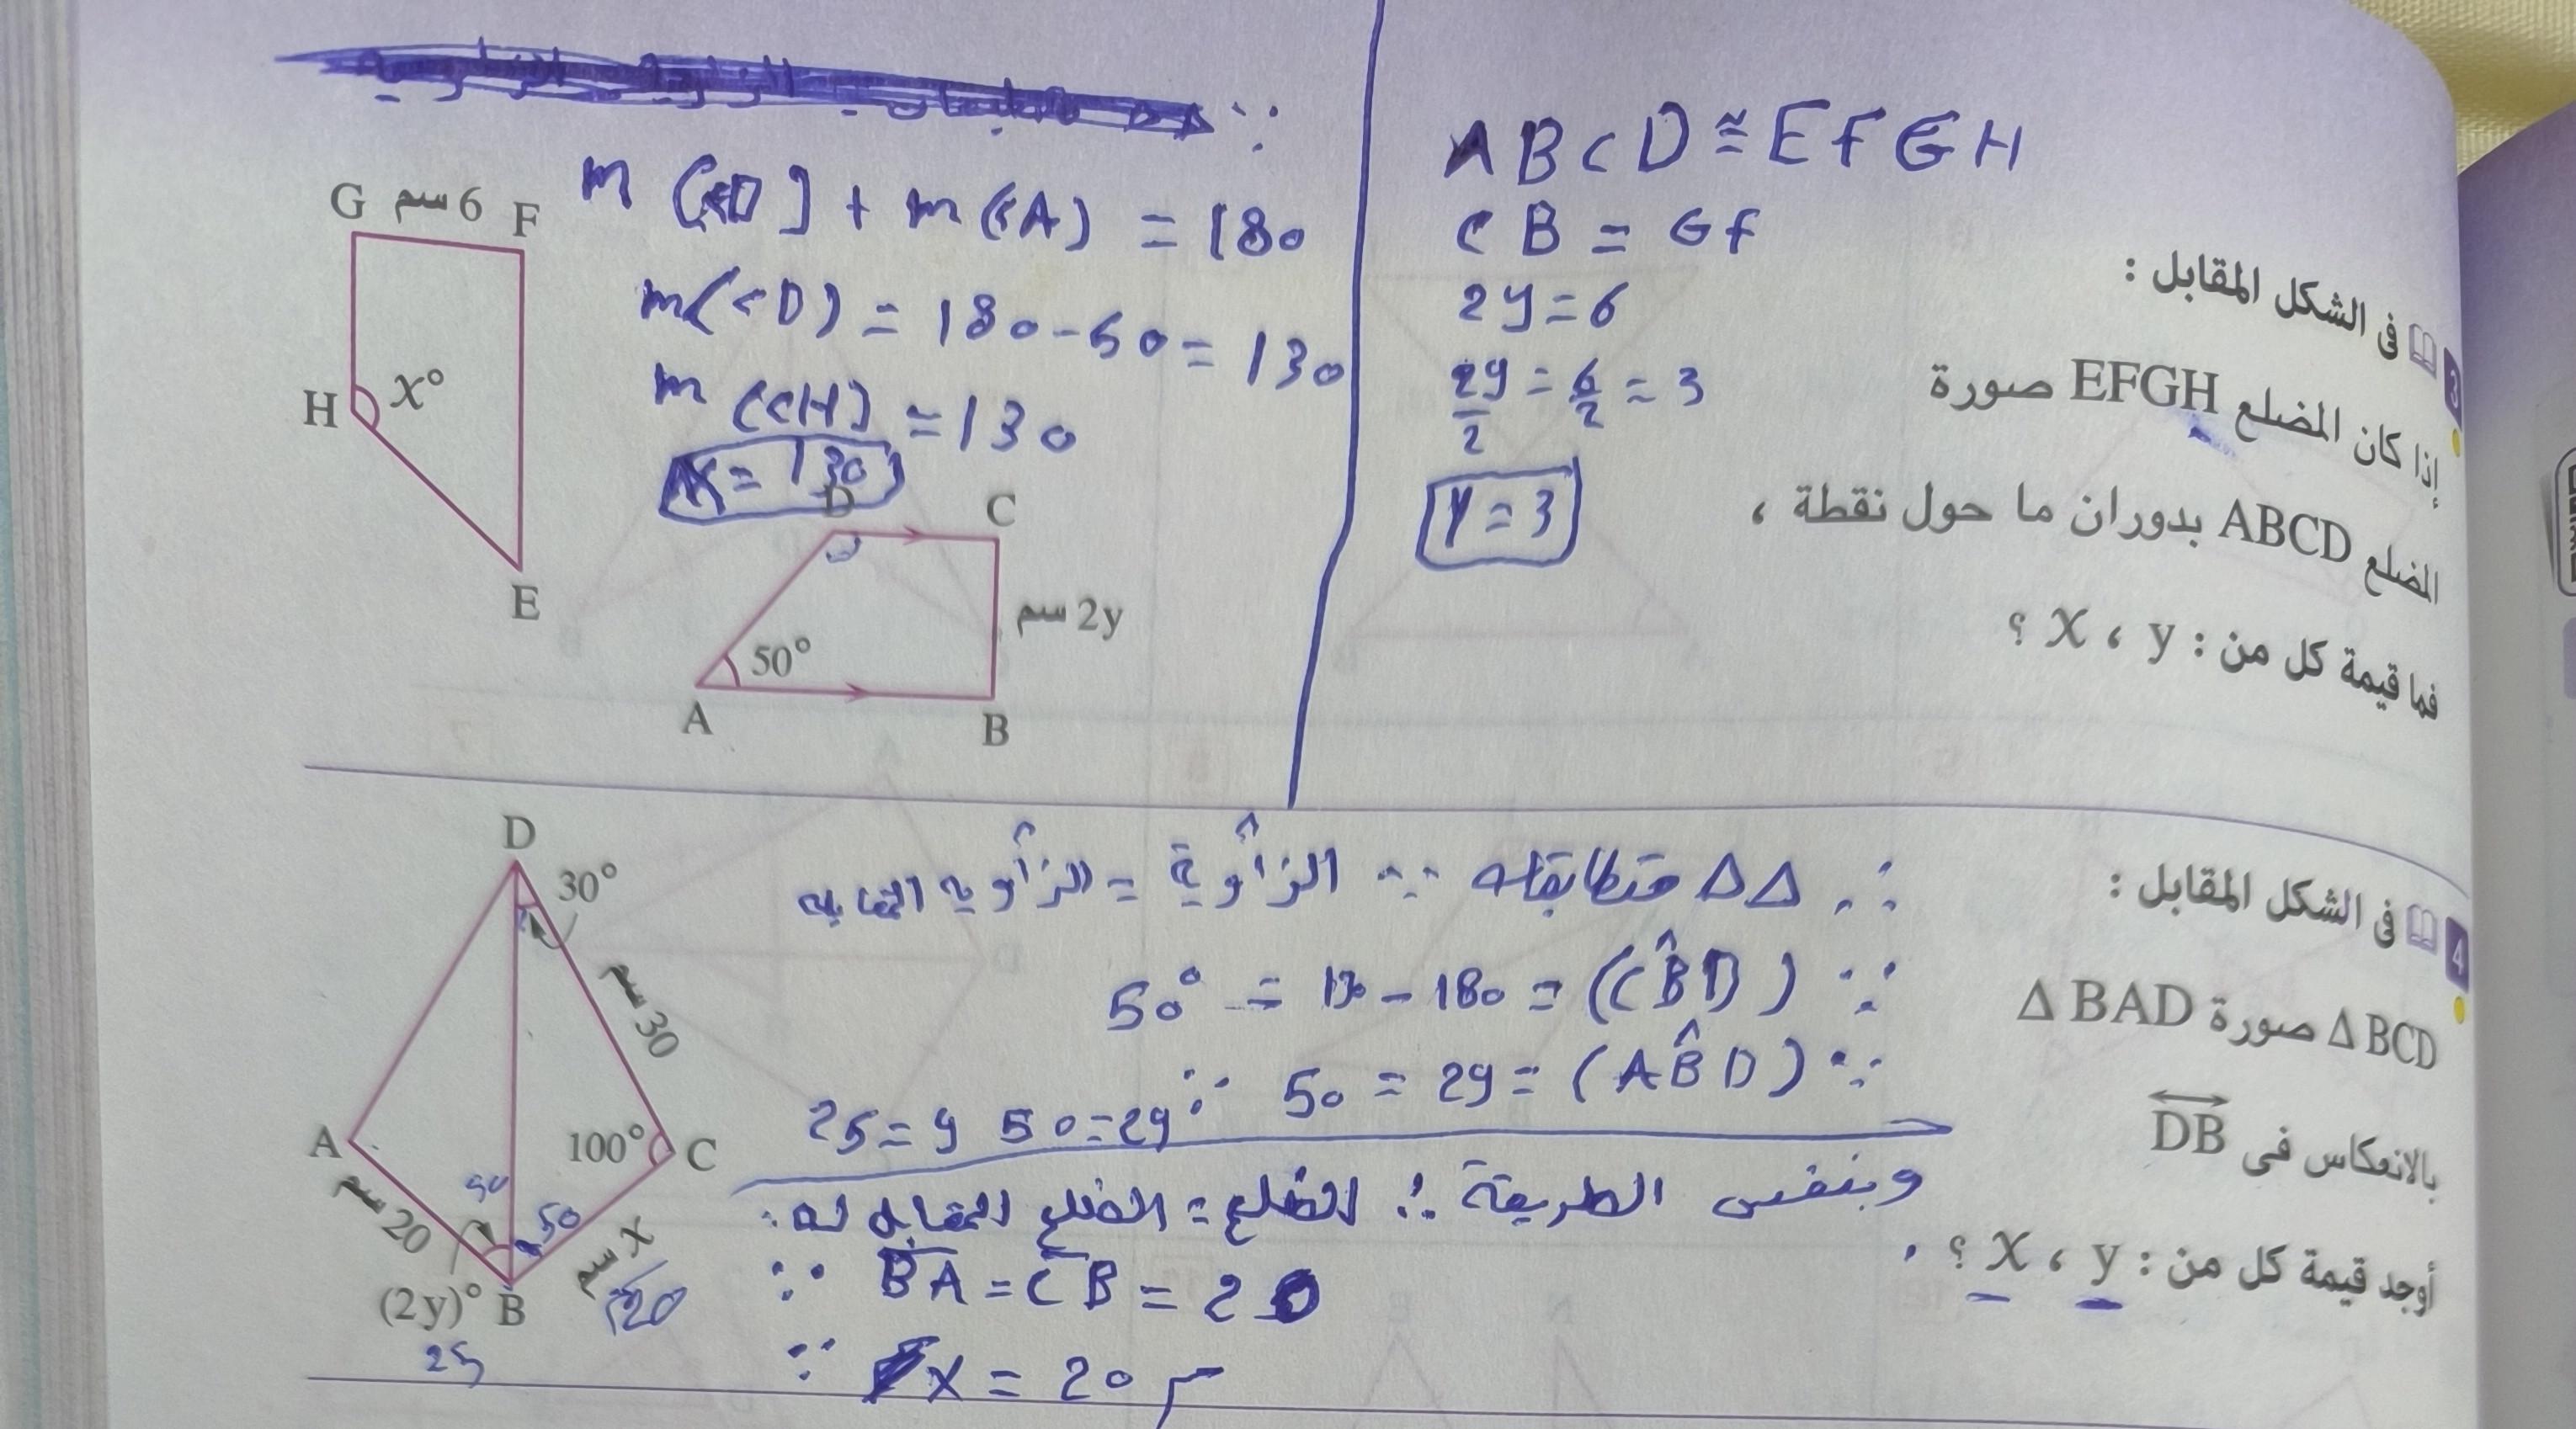 3 فى الشكل المقابل :
إذا كان المضلع EFGH صورة
المضلع ABCD بدوران ما حول نقطة ،
فما قيمة كل من : x ، y ؟
ABCD ≅ EFGH
CB = GF
2y = 6
2y/2 = 6/2 = 3
y = 3
m(<D) + m(<A) = 180
m(<D) = 180 - 50 = 130
m(<H) = 130
x = 130
G 6 سم F
H x°
E
D C
2y سم
50°
A B
4 فى الشكل المقابل :
Δ BCD صورة Δ BAD
بالانعكاس فى DB
أوجد قيمة كل من : x ، y ؟
∵ Δ Δ متطابقان ∴ الزاوية = الزاوية المقابله
(CBD) = 180 - 130 = 50°
(ABD) = 2y = 50 ∵ 2y = 50 y = 25
وبنفس الطريقة ∴ الضلع = الضلع المقابل له
BA = CB = 20
x = 20 سم
D
30°
30 سم
A 100° C
50 50
20 سم x سم
20
(2y)° B
25